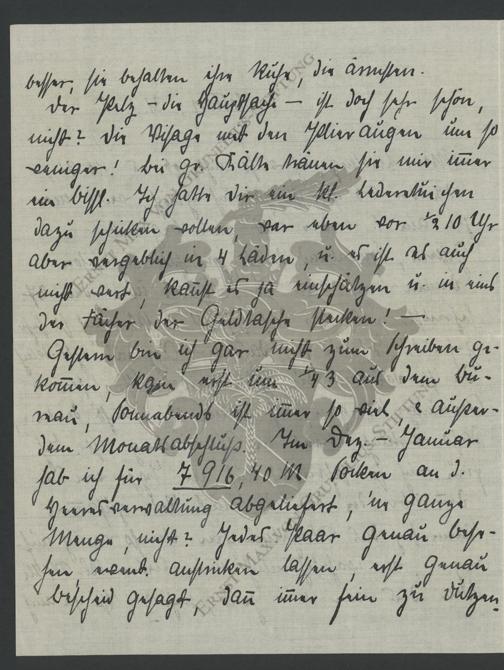 besser, sie behalten ihre Ruhe, die Ärmsten.
Der Pelz – die Hauptsache – ist doch sehr schön,
nicht? Die Visage mit den Plieraugen um so
weniger! Bei gr. Kälte tränen sie mir im̄er
ein bissl. Ich hatte Dir ein kl. Lederetuichen
dazu schicken wollen, war eben vor ½10 Uhr
aber vergeblich in 4 Läden, u. es ist es auch
nicht wert, kannst es ja einschätzen u. in eins
der Fächer der Geldtasche stecken! —
Gestern bin ich gar nicht zum Schreiben ge-
kom̄en, kam erst um ¼3 aus dem Bu-
reau, Sonnabends ist im̄er so viel, & außer-
dem Monatsabschluß. Im Dez. – Januar
hab ich für 7916,40 M Socken an d.
Heeresverwaltung abgeliefert, 'ne ganze
Menge, nicht? Jedes Paar genau bese-
hen, event. anstricken lassen, erst genau
bescheid gesagt, dan̄ im̄er fein zu Dutzen
ERNST MAX VON GRUNELIUS-STIFTUNG
ERNST MAX VON GRUNELIUS-STIFTUNG